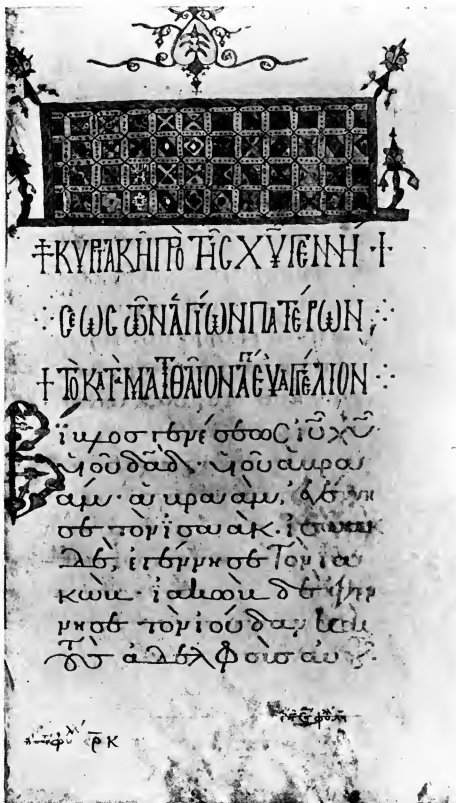 + ΚΥΡΙΑΚΗ ΠΡῸ ΤΗ͂Ϲ Χ͞Υ ΓΕΝΝΉ +
ϹΕΩϹ ΤΩ͂Ν ἉΓΊΩΝ ΠΑΤΈΡΩΝ
+ ΤῸ ΚΑΤᾺ ΜΑΤΘΑΙ͂ΟΝ ΕΥΑΓΓΈΛΙΟΝ
Βίβλος γενέσεως ἰ͞υ χ͞υ
υἱοῦ δα͞δ, υἱοῦ ἀβρα
ὰμ· ἀβραὰμ, ἐγέννη
σε τὸν ἰσαάκ· ἰσαὰκ
δὲ, ἐγέννησε τὸν ἰα
κώβ· ἰακὼβ δὲ ἐγέν
νησε τὸν ἰούδαν καὶ
τοὺς ἀδελφοὺς αὐτοῦ·
ρ͞κ